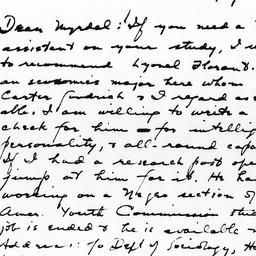 Dear Myrdal: If you need a
assistant on your study, I w
to recommend Lyonel Florant.
an economics major here whom
Carter Goodrich & I regard as e
able. I am willing to write a
check for him — for intellig
personality, & all-round capa
If I had a research post ope
jump at him for it. He ha
working on a Negro section of
Amer. Youth Commission stud
job is ended & he is available
Address: c/o Dep't of Sociology, Ho